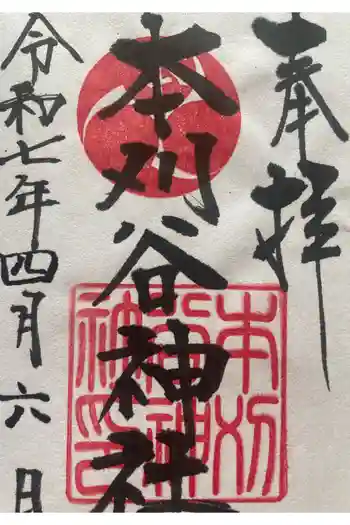 奉拝
本刈谷神社
令和七年四月六日
本刈谷神社神印